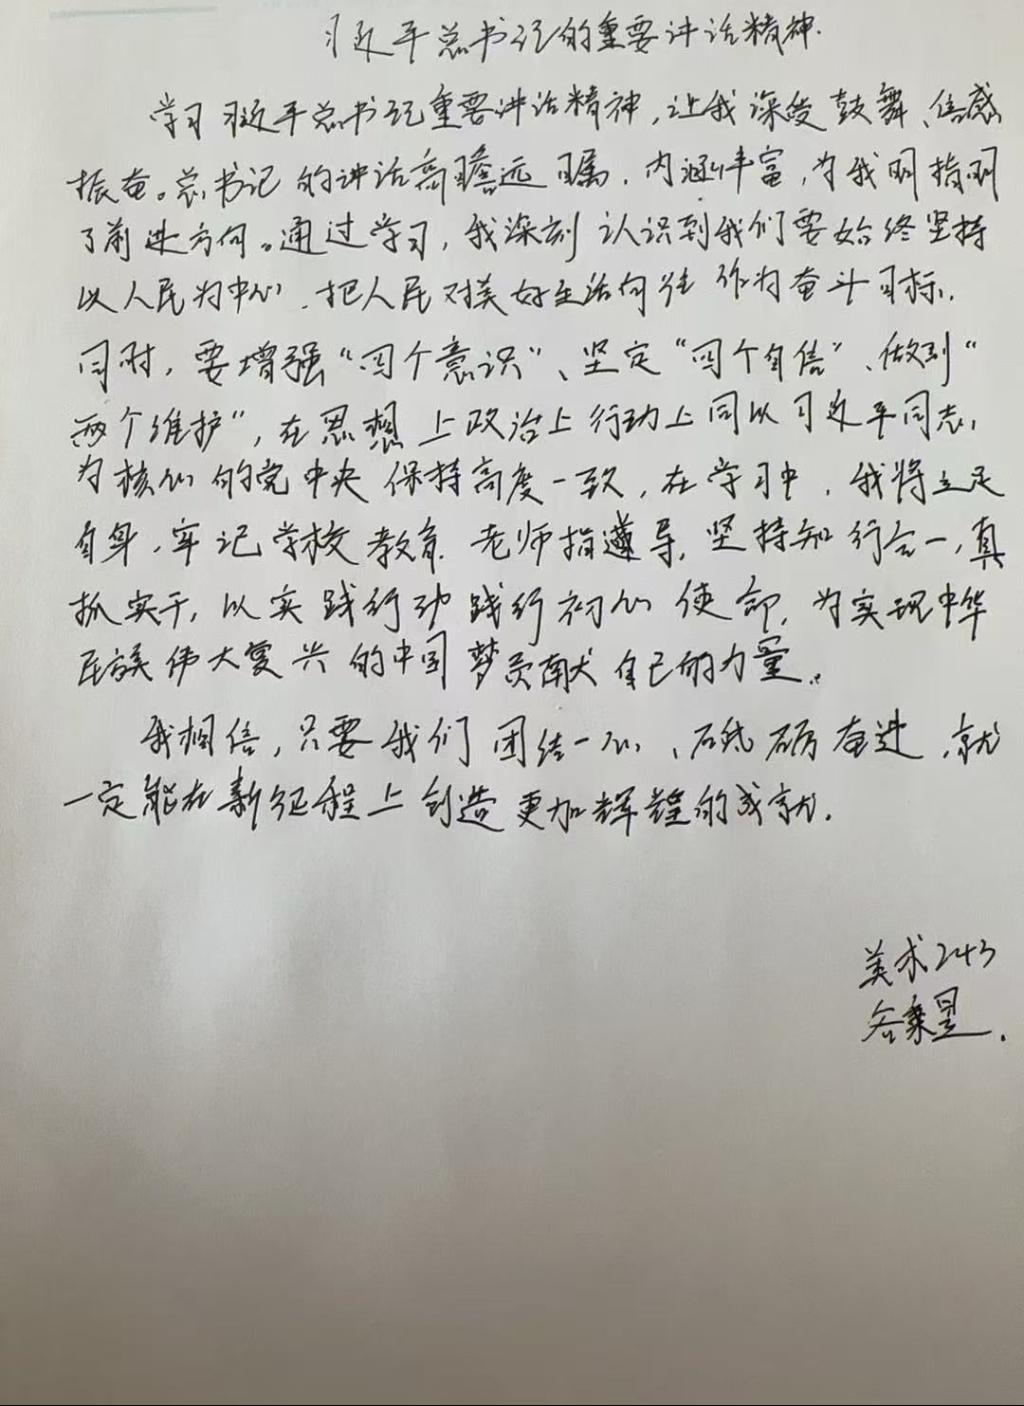 习近平总书记的重要讲话精神.
学习习近平总书记重要讲话精神,让我深受鼓舞、倍感
振奋。总书记的讲话高瞻远瞩.内涵丰富,为我们指明
了前进方向。通过学习,我深刻认识到我们要始终坚持
以人民为中心.把人民对美好生活向往作为奋斗目标.
同时,要增强“四个意识”、坚定“四个自信”、做到“
两个维护”,在思想上政治上行动上同以习近平同志,
为核心的党中央保持高度一致,在学习中,我将立足
自身,牢记学校教育.老师指导,坚持知行合一,真
抓实干,以实践行动践行初心使命,为实现中华
民族伟大复兴的中国梦贡献自己的力量.
我相信,只要我们团结一心、砥砺奋进,就
一定能在新征程上创造更加辉煌的成就.
美术243